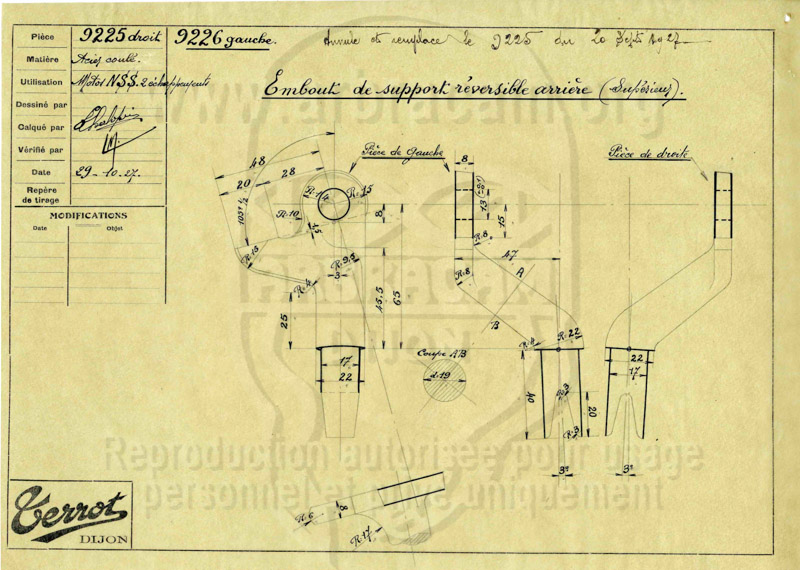 Pièce 9225 droit 9226 gauche.
Annule et remplace le 9225 du 20 Sept 1927
Matière Acier coulé.
Utilisation Motos NSS. 2 échappements
Embout de support réversible arrière (Supérieur).
Dessiné par
Calqué par
Vérifié par
Date 29-10-27.
Repère de tirage
MODIFICATIONS
Date Objet
Pièce de Gauche
Pièce de droite
48
20
28
R.15
R.10
15
8
R.9,5
3
R.4
25
45.5
65
17
22
8
13
15
R.8
R.8
47
A
B
R.22
Coupe AB
d.19
40
R.3
20
R.3
3°
22
17
3°
R.6
8
R.17
www.arbracam.org
ARBRACAM
DIJON
Reproduction autorisée pour usage
personnel et privé uniquement
Terrot
DIJON